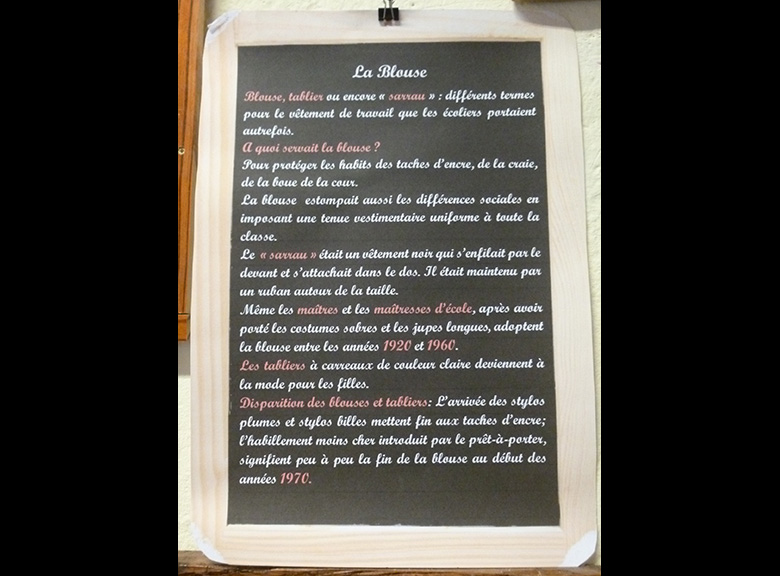 La Blouse
Blouse, tablier ou encore « sarrau » : différents termes
pour le vêtement de travail que les écoliers portaient
autrefois.
A quoi servait la blouse ?
Pour protéger les habits des taches d'encre, de la craie,
de la boue de la cour.
La blouse estompait aussi les différences sociales en
imposant une tenue vestimentaire uniforme à toute la
classe.
Le « sarrau » était un vêtement noir qui s'enfilait par le
devant et s'attachait dans le dos. Il était maintenu par
un ruban autour de la taille.
Même les maîtres et les maîtresses d'école, après avoir
porté les costumes sobres et les jupes longues, adoptent
la blouse entre les années 1920 et 1960.
Les tabliers à carreaux de couleur claire deviennent à
la mode pour les filles.
Disparition des blouses et tabliers: L'arrivée des stylos
plumes et stylos billes mettent fin aux taches d'encre;
l'habillement moins cher introduit par le prêt-à-porter,
signifient peu à peu la fin de la blouse au début des
années 1970.